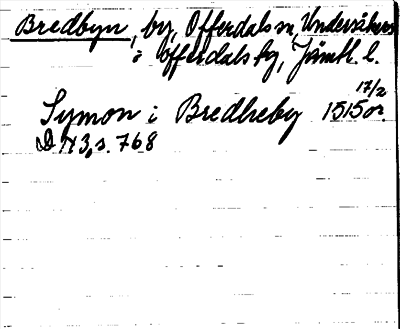 Bredbyn, by, Offerdals sn, Undersåkers
i Offerdals tg, Jämtl. l.
17/2
Symon i Bredheby 1515 or.
DN 3, s. 768